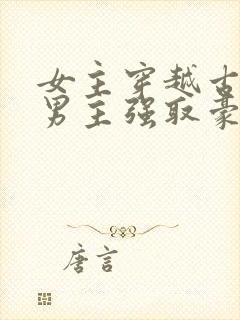 女主穿越古
男主强取豪
唐言